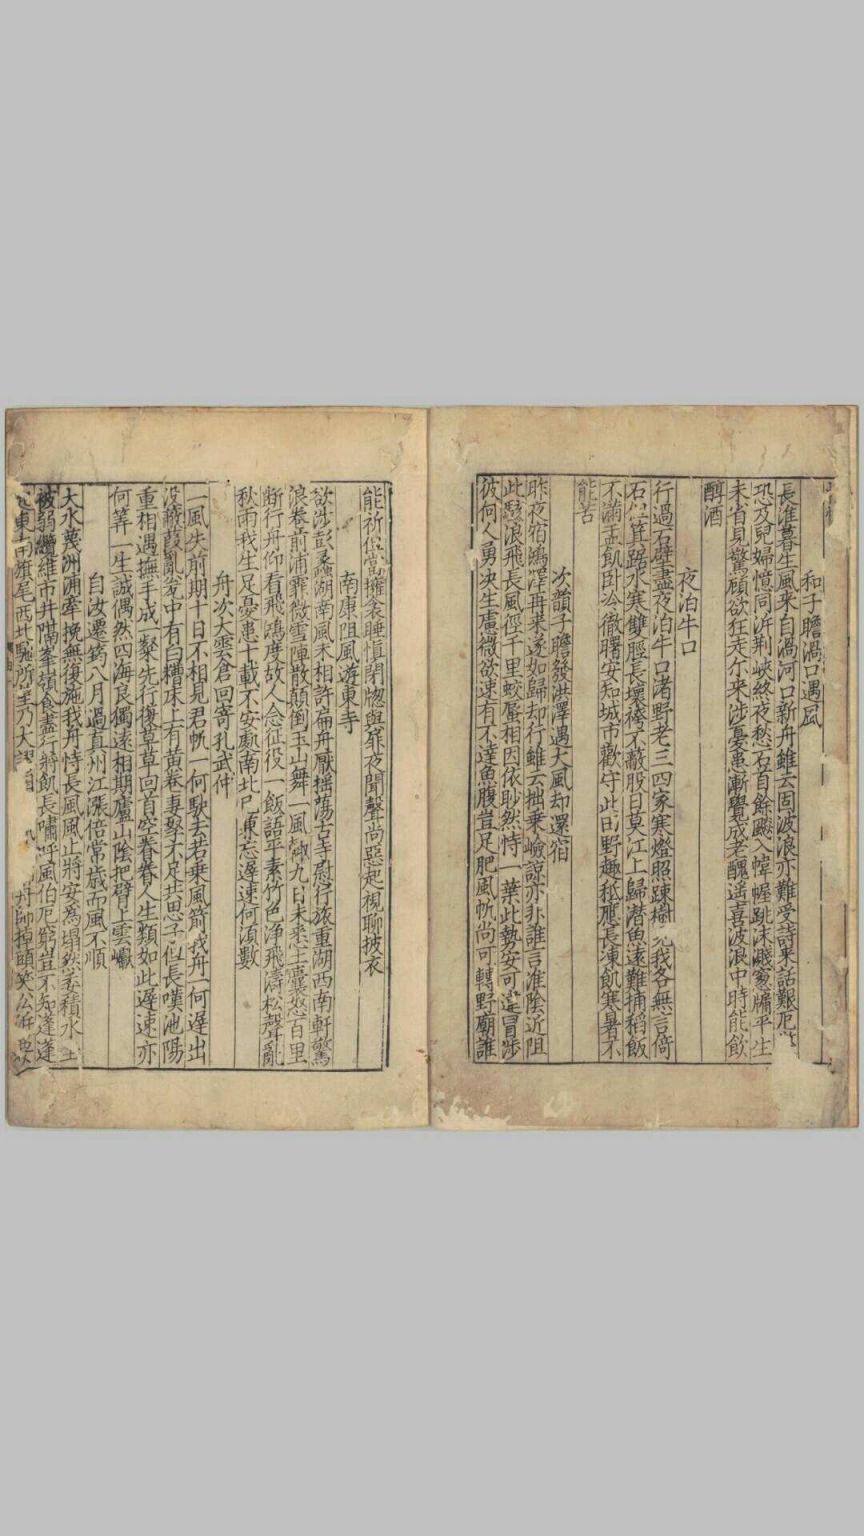 和子瞻渦口遇風
長淮暮生風來自渦河口新舟雖云固波浪亦難受詩來話艱厄
恐及兒婦憶同泝荆峽終夜愁石首餘飈入幃幄跳沫濺窓牖平生
未省見驚顧欲狂走尔来涉憂患漸覺成老醜遥喜波浪中時能飲
醇酒
夜泊牛口
行過石壁盡夜泊牛口渚野老三四家寒燈照踈樹我各無言倚
石箕踞水寒雙脛長壞袴不蔽股日莫江上歸潜魚遠難捕稻飯
不滿盂飢卧冷徹曙安知城市歡守此田野趣秪應長凍飢寒暑不
能苦
次韻子瞻發洪澤遇大風却還宿
昨夜宿鴻澤再来遂如歸却行雖云拙乗嶮諒亦非誰言淮陰近阻
此駭浪飛長風徑千里蛟蜃相因依眇然恃一葉此勢安可違冒涉
彼何人勇决生慮微欲速有不達魚腹豈足肥風帆尚可轉野廟誰
能祈但當擁衾睡慎閉牕與扉夜聞聲尚惡起視聊披衣
南康阻風遊東寺
欲涉彭蠡湖南風未相許扁舟厭摇蕩古寺慰行旅重湖面南軒驚
浪卷前浦霏微雪陣散顛倒玉山舞一風輒九日未悉土囊怒百里
断行舟仰看飛鴻度故人念征役一飯語平素竹色浄飛濤松聲亂
秋雨我生足憂患十載不安處南北已兼忘遲速何湏數
舟次大雲倉回寄孔武仲
一風失前期十日不相見君帆一何駛去若乗風箭我舟一何遲出
没蔽葭亂舟中有白糟床上有黄卷妻孥大足共思子但長嘆池陽
重相遇撫手成一粲先行復草草回首空眷眷人生類如此遲速亦
何筭一生誠偶然四海良獨遠相期廬山陰把臂上雲巘
自汝遷筠八月過真州江漲倍常歳而風不順
大水蔑洲浦牽挽無復施我舟恃長風風止將安為塌然委積水
被弱纜維市井隔峯嶺食盡行將飢長嘯呼風伯厄窮豈不知蓬蓬
東南旗尾西北馳所至乃大舟師掉頭笑